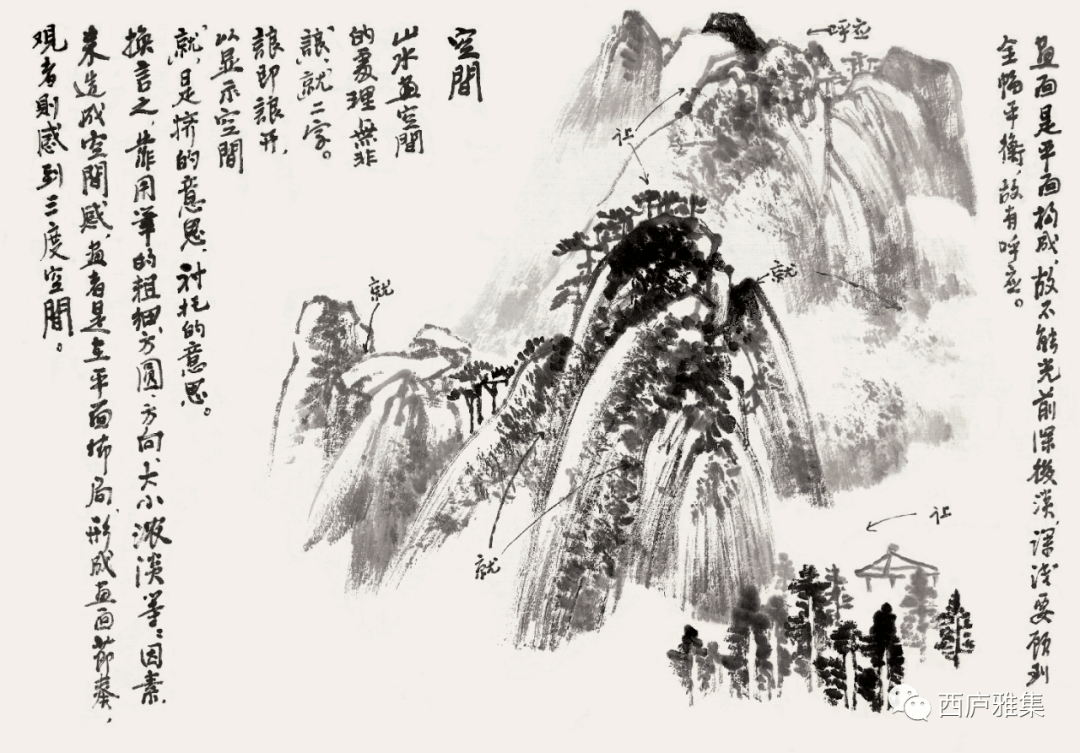 畫面是平面构成,故不能光前深後淡,深浅要顾到
全幅平衡,故有呼应。
呼应
让
就
就
就
让
空間
山水畫空間
的處理無非
讓、就二字。
讓即讓开,
以显示空間
就,是挤的意思,衬托的意思。
換言之,靠用筆的粗细、方圓、方向、大小濃淡等等因素,
来造成空間感,畫者是在平面佈局,形成畫面節奏,
观者則感到三度空間。
西庐雅集